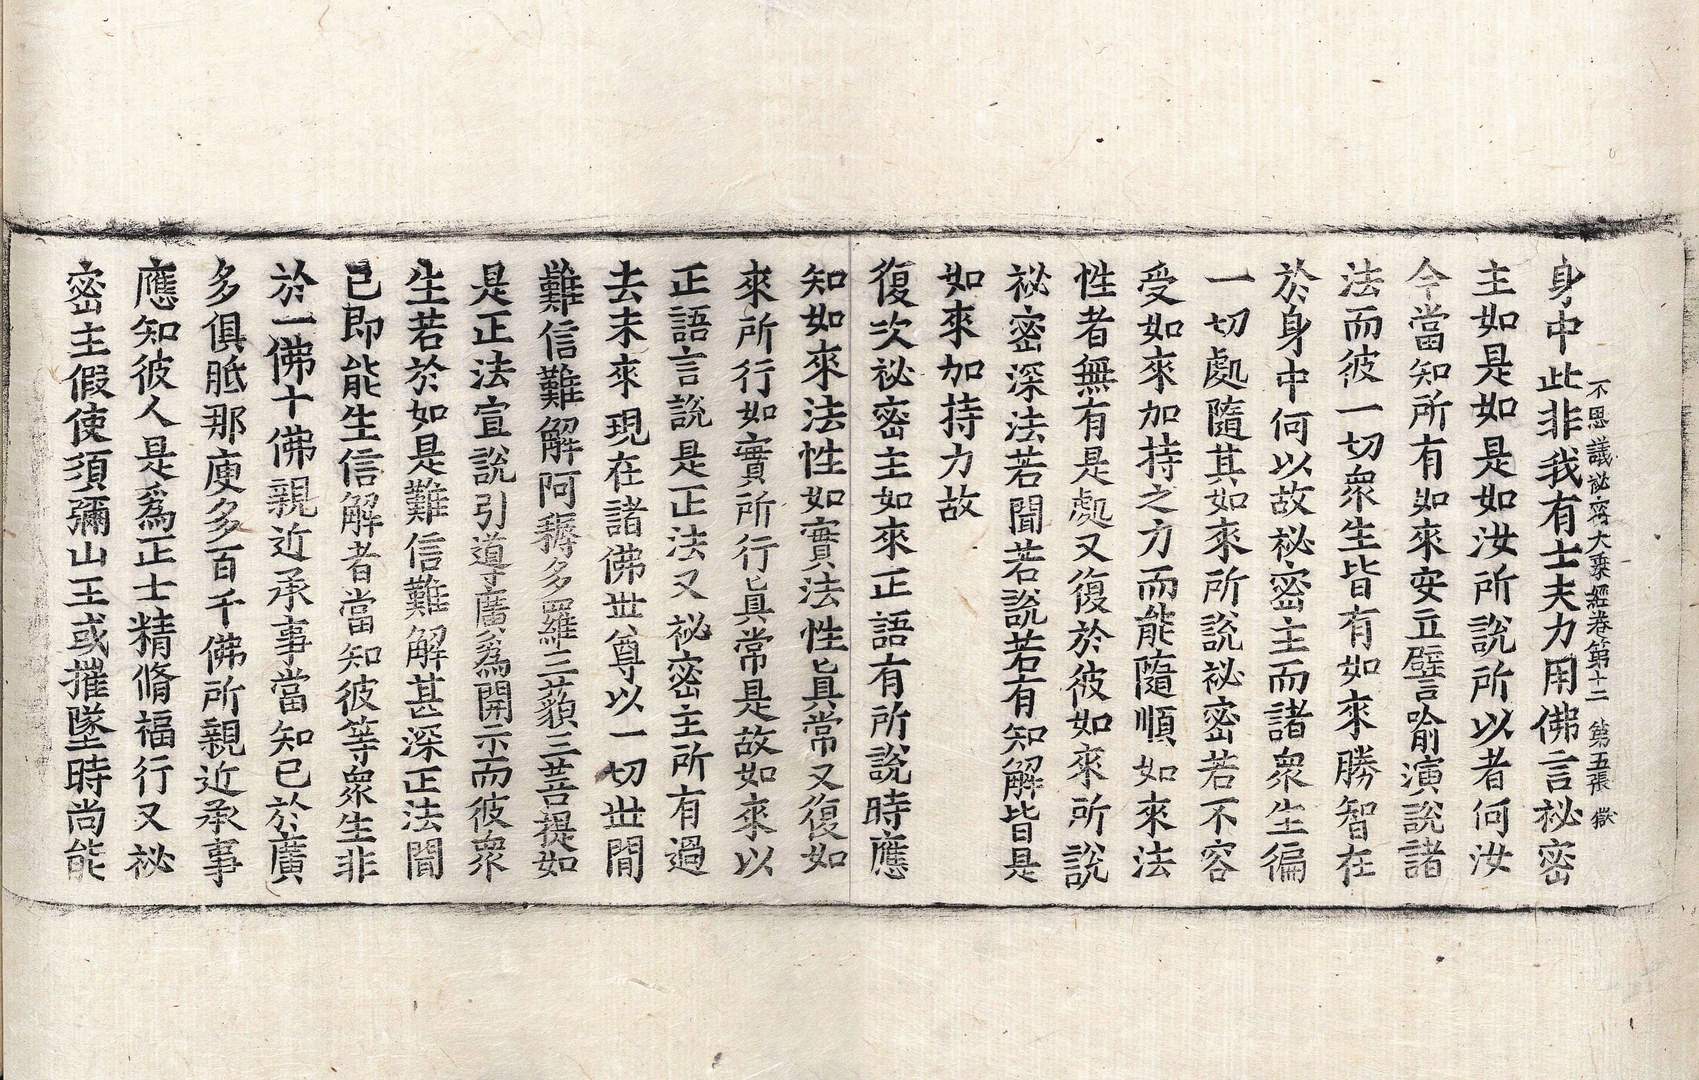 不思議祕密大乘經卷第十二 第五張 獄
身中此非我有士夫力用佛言祕密
主如是如是如汝所說所以者何汝
今當知所有如來安立譬喻演說諸
法而彼一切衆生皆有如來勝智在
於身中何以故祕密主而諸衆生徧
一切處隨其如來所說祕密若不容
受如來加持之方而能隨順如來法
性者無有是處又復於彼如來所說
祕密深法若聞若說若有知解皆是
如來加持力故
復次祕密主如來正語有所說時應
知如來法性如實法性眞常又復如
來所行如實所行眞常是故如來以
正語言說是正法又祕密主所有過
去未來現在諸佛世尊以一切世間
難信難解阿耨多羅三藐三菩提如
是正法宣說引導廣爲開示而彼衆
生若於如是難信難解甚深正法聞
已即能生信解者當知彼等衆生非
於一佛十佛親近承事當知已於廣
多俱胝那庾多百千佛所親近承事
應知彼人是爲正士精脩福行又祕
密主假使須彌山王或摧墜時尚能